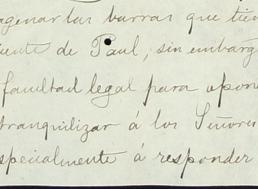 agenar las barras que tien
iente de Paul, sin embarg
facultad legal para opon
tranquilizar á los Señores
specialmente á responder